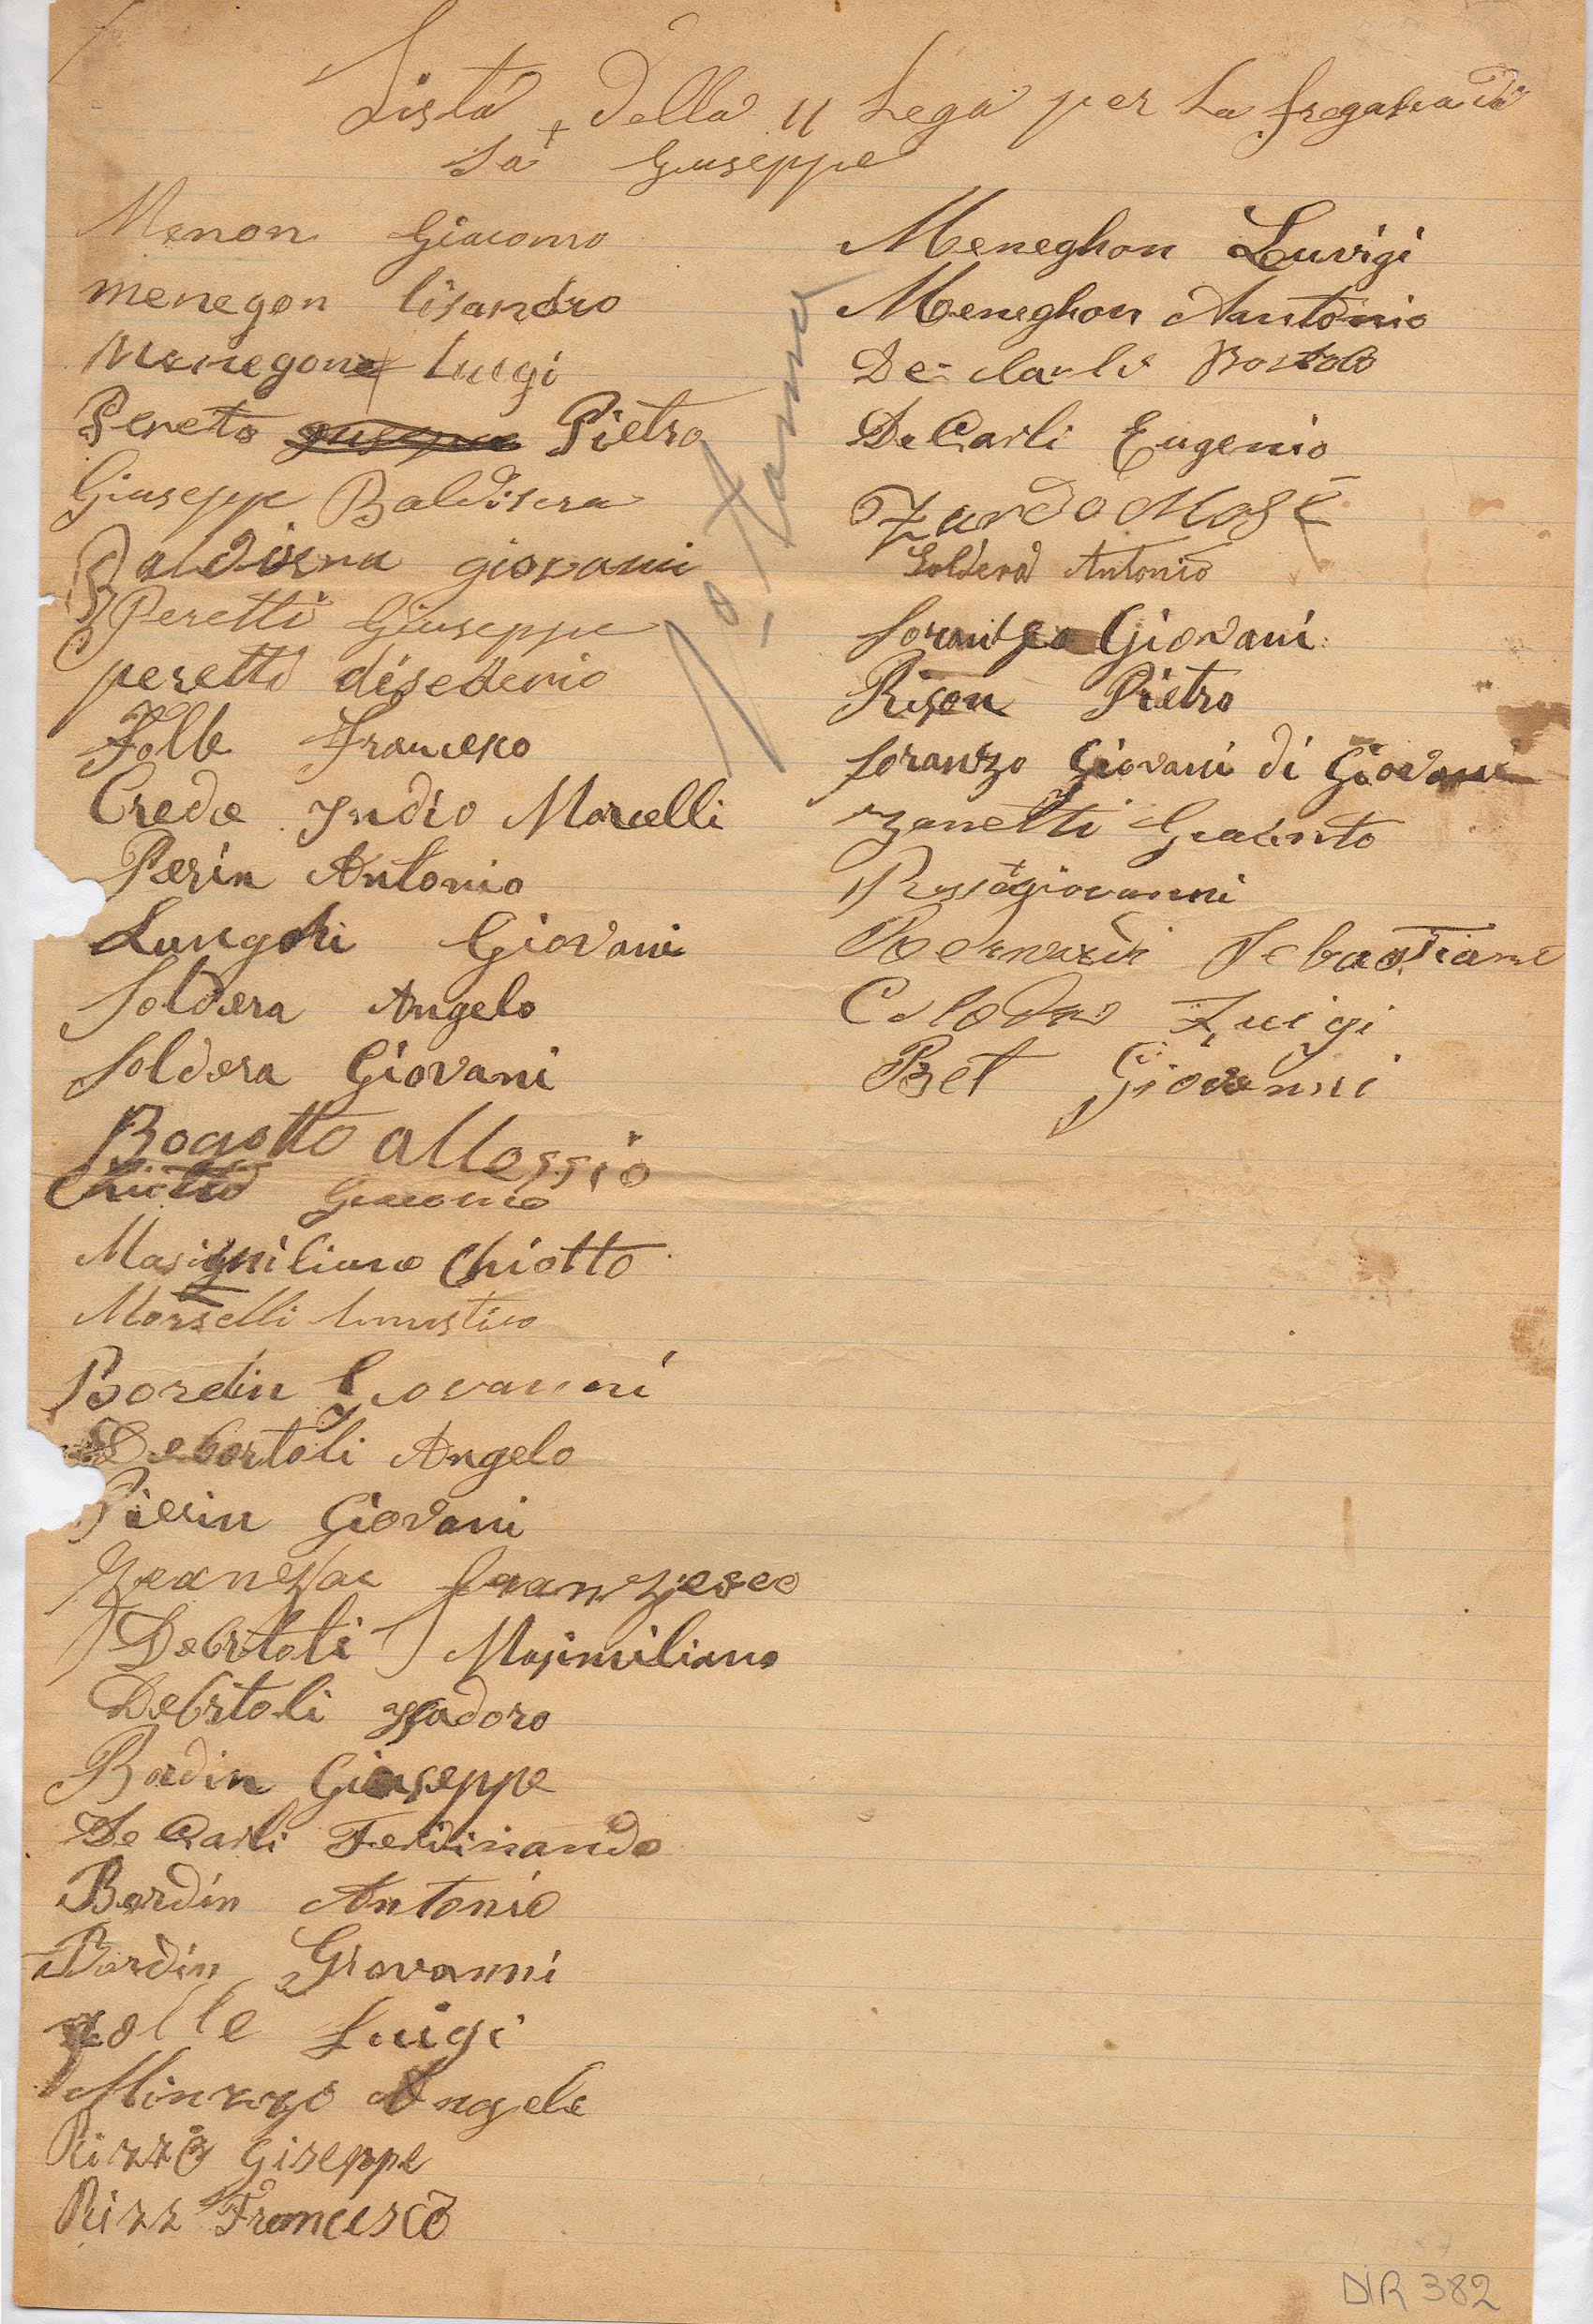 Lista della 11 Lega per La
Sa Giuseppe
Menon Giacomo
menegon lisandro
Menegon Luigi
Pereto Pietro
Giuseppe Baldisera
Baldisera giovani
Peretti Giuseppe
peretti
Folle Francesco
Creda Marcelli
Perin Antonio
Lunghi Giovani
Soldera Angelo
Soldera Giovani
Bogotto allessio
Chiotto Giacomo
Masimiliano Chiotto
Morselli
Bordin Giovanni
Debortoli Angelo
Pierin Giovani
Debrtoli Masimiliano
Debrtoli
Bordin Giuseppe
De Carli Ferdinando
Bordin Antonio
Bordin Giovanni
Folle Luigi
Minzzo Angelo
Rizzo Giseppe
Rizz Francesco
Meneghon Luvigi
Meneghon Aantonio
De Carli Bortolo
De Carli Eugenio
Zardo Mosè
Soldera Antonio
Soranzo Giovani
Rison Pietro
Soranzo Giovani di Giovani
Zanetti Giacinto
Giovanni
Bernardi Sebastiano
Luigi
Bet Giovanni
DIR 382